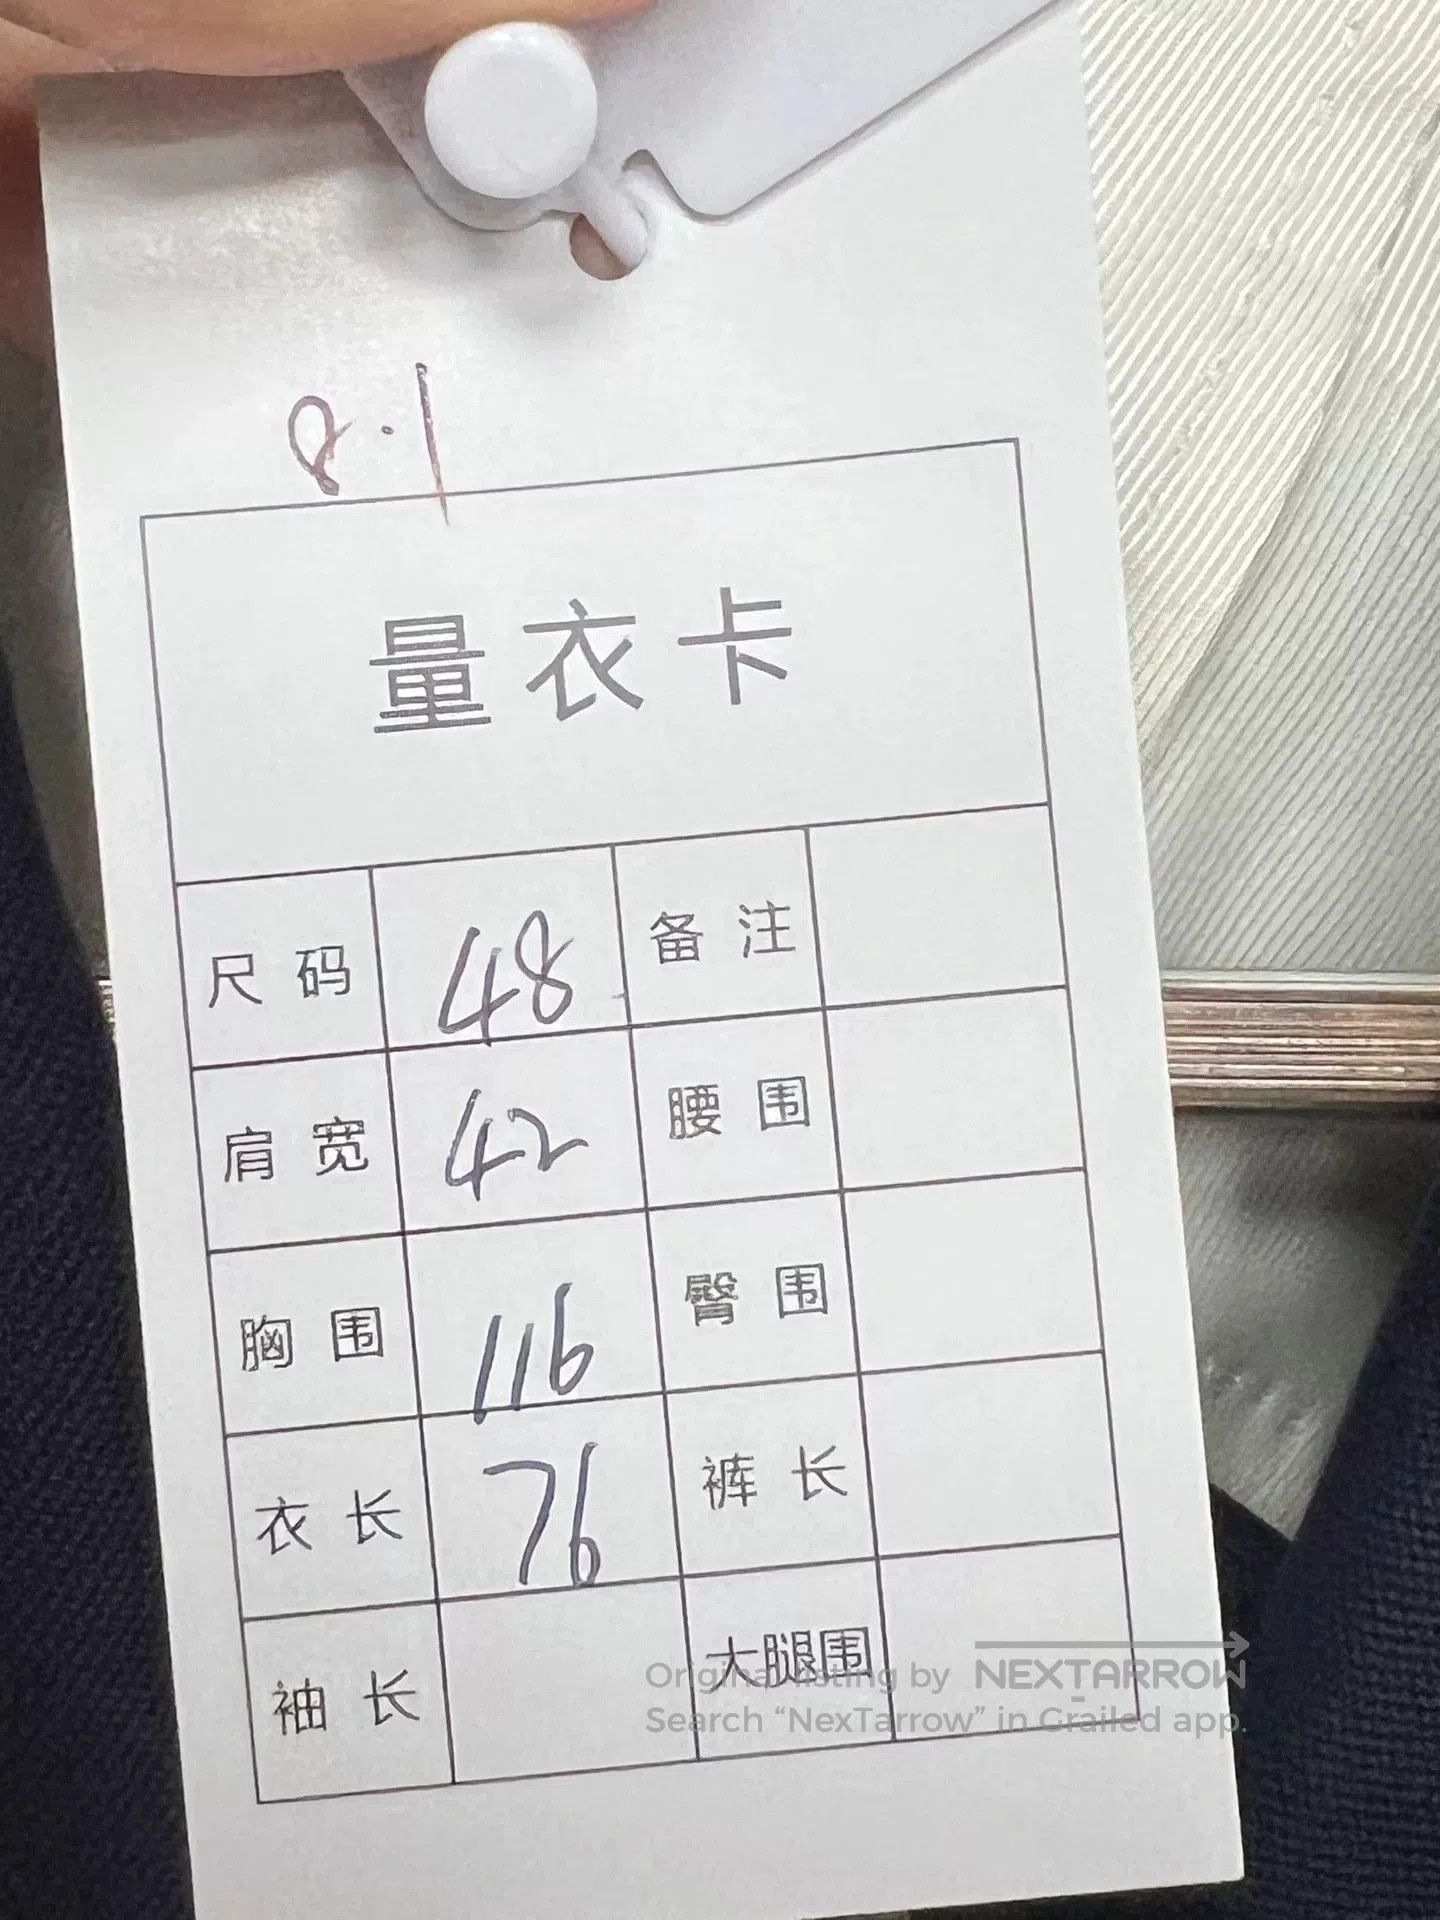 8.1
量衣卡
尺码 48 备注
肩宽 42 腰围
胸围 116 臀围
衣长 76 裤长
袖长 大腿围
Original listing by NEXTARROW
Search “NexTarrow” in Grailed app.